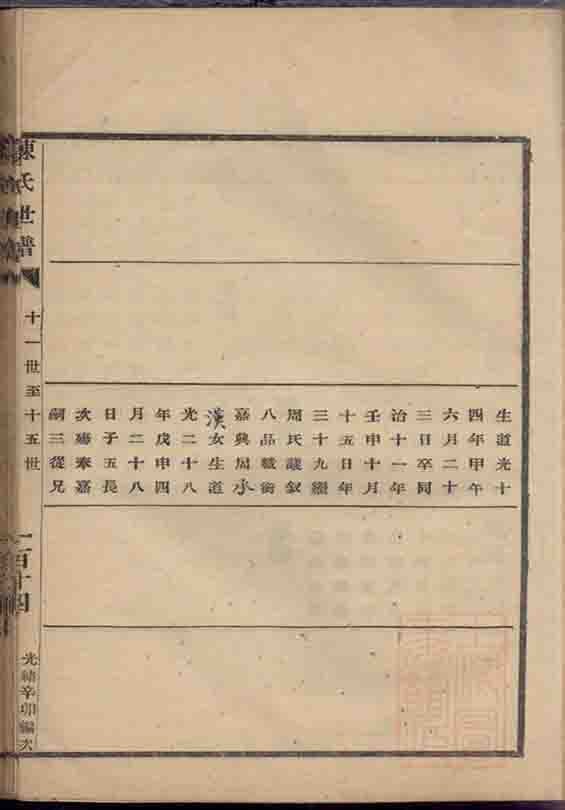 生道光十
四年甲午
六月二十
三日卒同
治十一年
壬申十月
十五日年
三十九繼
周氏議敘
八品職銜
嘉興周承
漢女生道
光二十八
年戊申四
月二十八
日子五長
次殤奉嘉
嗣三從兄
陳氏世譜
十一世至十五世
一百十四
光緒辛卯編次